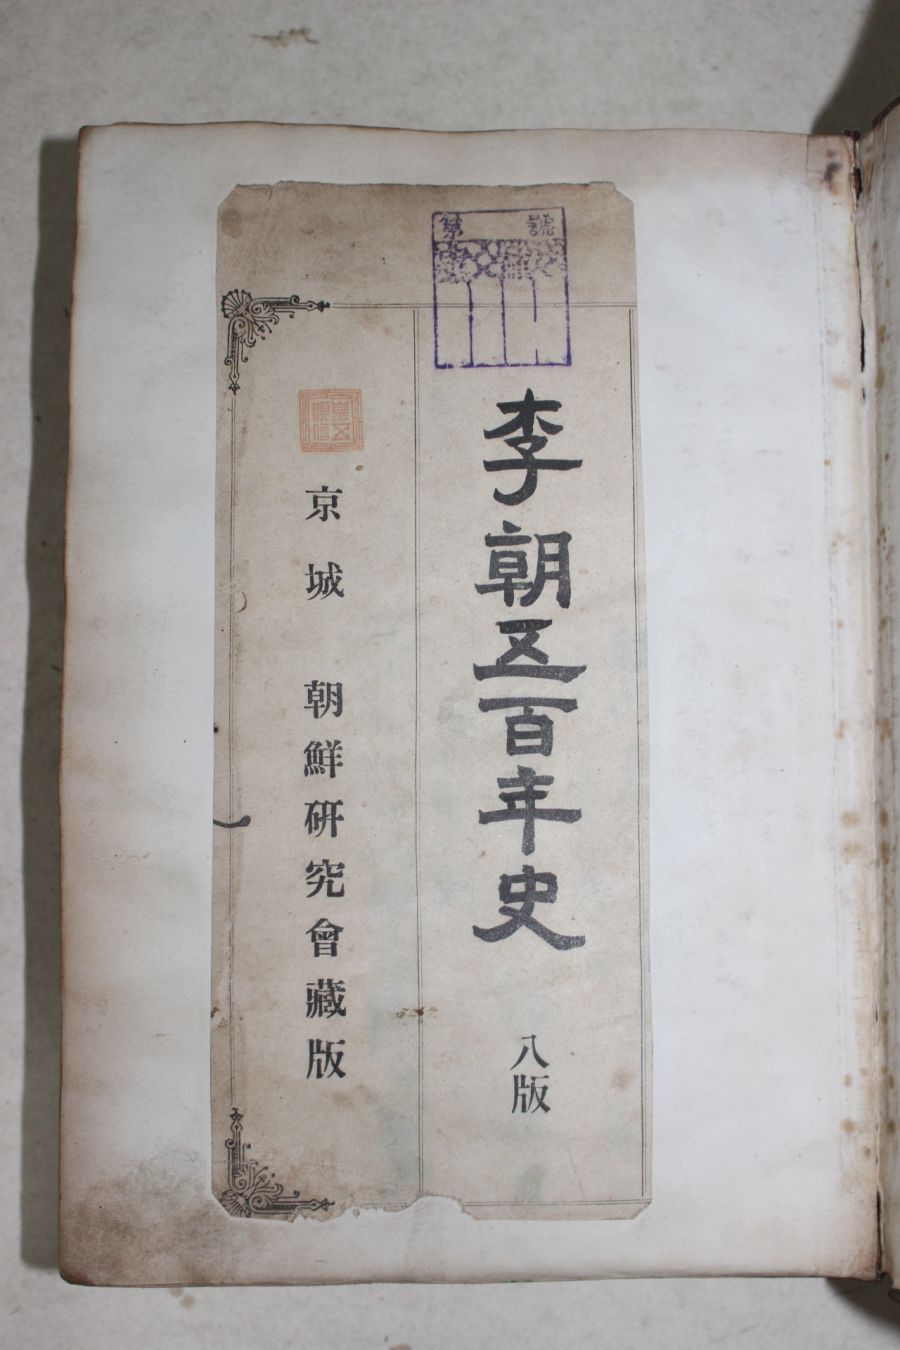 第 號
李朝五百年史
八版
京城 朝鮮硏究會藏版